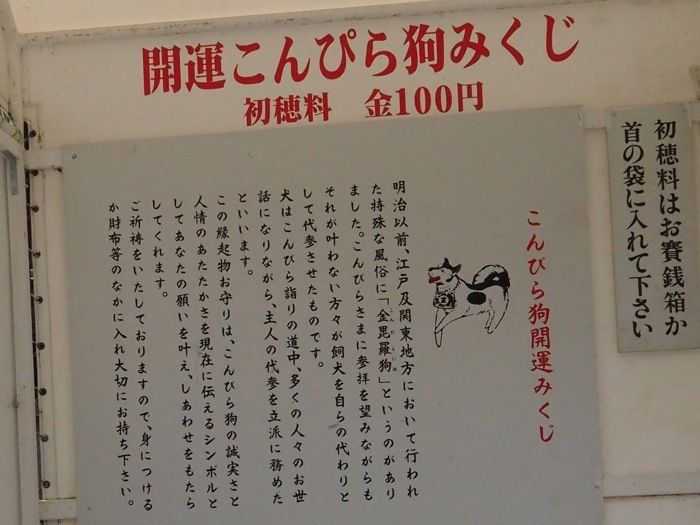 開運こんぴら狗みくじ
初穂料　金100円
初穂料はお賽銭箱か
首の袋に入れて下さい
こんぴら狗開運みくじ
明治以前、江戸及関東地方において行われ
た特殊な風俗に「金毘羅狗」というのがあり
ました。こんぴらさまに参拝を望みながらも
それが叶わない方々が飼犬を自らの代わりと
して代参させたものです。
犬はこんぴら詣りの道中、多くの人々のお世
話になりながら、主人の代参を立派に務めた
といいます。
この縁起物お守りは、こんぴら狗の誠実さと
人情のあたたかさを現在に伝えるシンボルと
してあなたの願いを叶え、しあわせをもたら
してくれます。
ご祈祷をいたしておりますので、身につける
か財布等のなかに入れ大切にお持ち下さい。